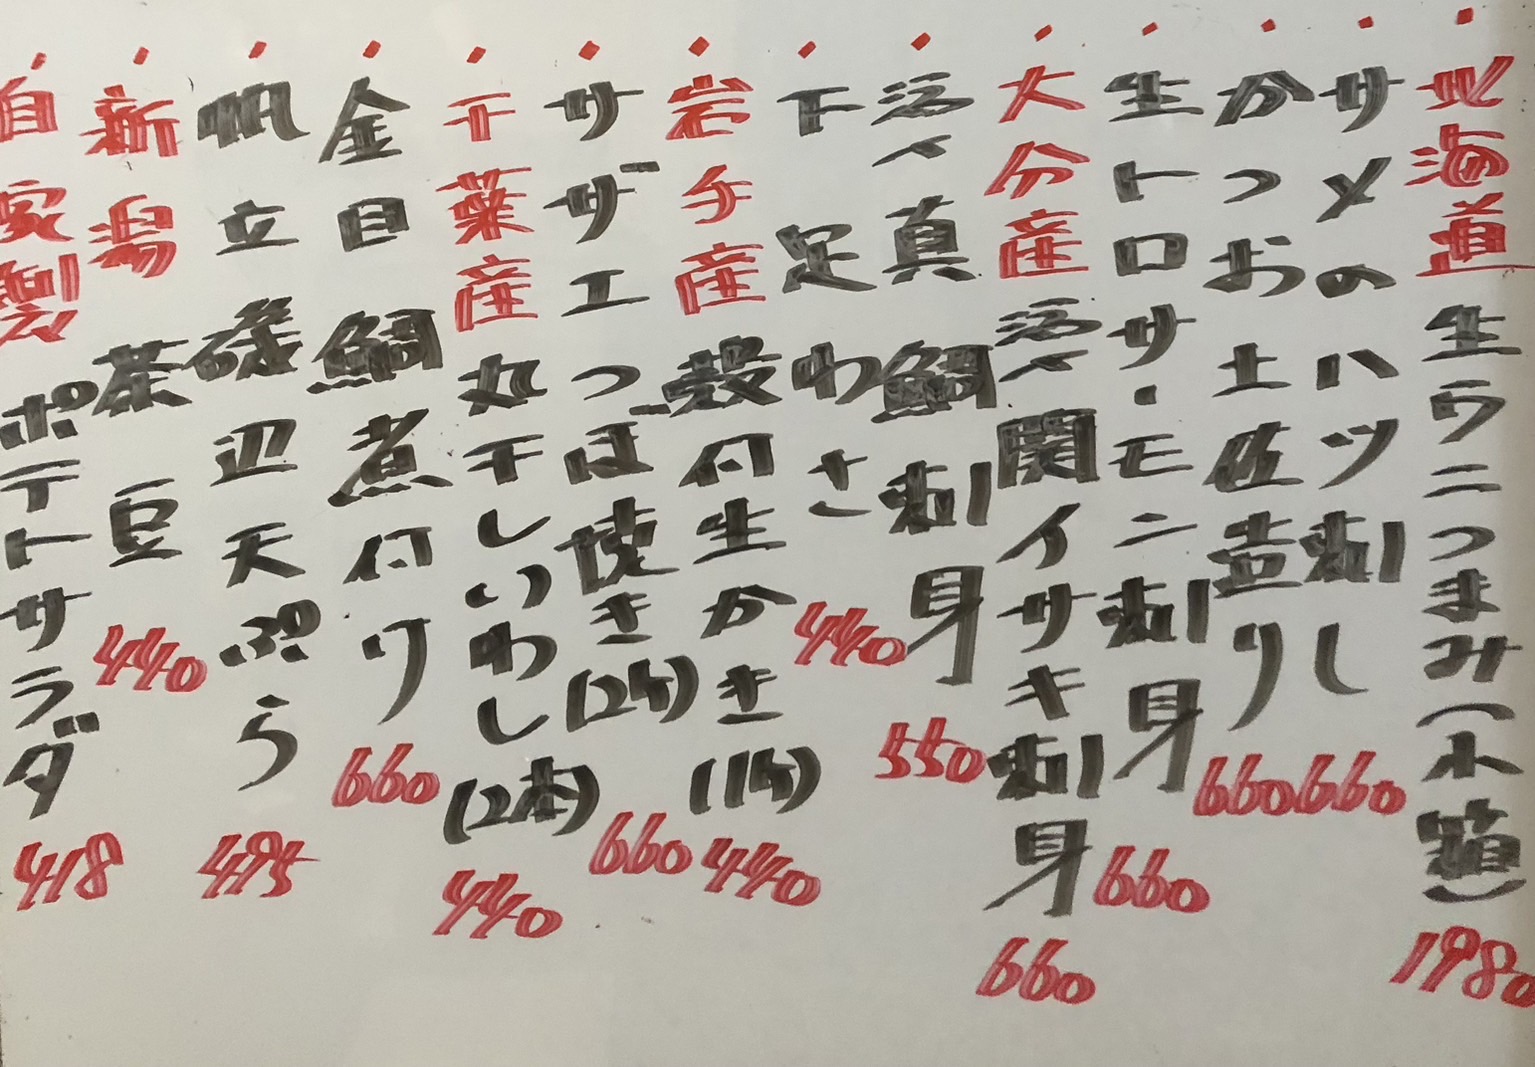 ・北海道生ウニつまみ(小箱)1980
・サメのハツ刺し660
・かつお土佐造り660
・生トロサーモン刺身660
・大分産活〆関イサキ刺身660
・活〆真鯛刺身550
・下足わさ440
・岩手産殻付生かき(1ケ)440
・サザエつぼ焼き(2ケ)660
・千葉産丸干しいわし(2本)440
・金目鯛煮付け660
・帆立磯辺天ぷら495
・新潟茶豆440
・自家製ポテトサラダ418